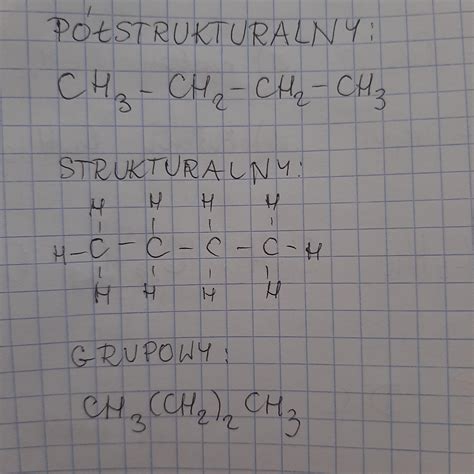 PÓŁSTRUKTURALNY:
CH₃ – CH₂ – CH₂ – CH₃
STRUKTURALNY:
H H H H
H – C – C – C – C – H
H H H H
GRUPOWY:
CH₃(CH₂)₂CH₃